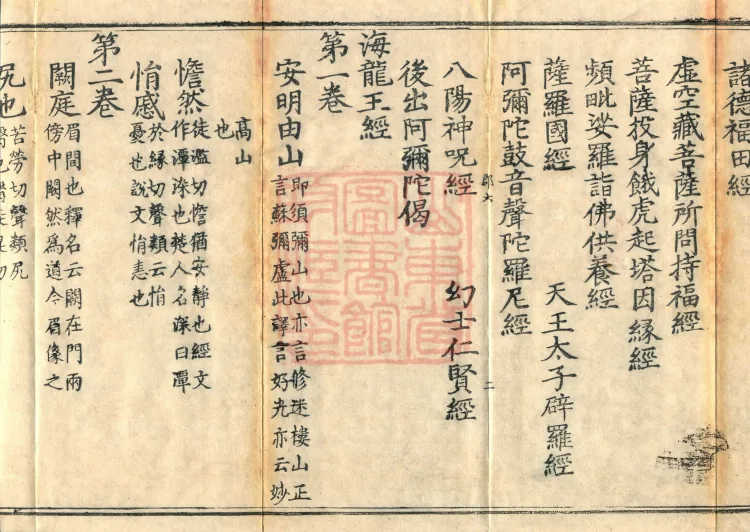 諸德福田經
虛空藏菩薩所問持福經
菩薩投身餓虎起塔因緣經
頻毗娑羅詣佛供養經
薩羅國經 天王太子辟羅經
阿彌陀鼓音聲陀羅尼經
二
八陽神呪經 幻士仁賢經
後出阿彌陀偈
海龍王經
第一卷
安明由山 即須彌山也亦言修迷樓山正
言蘇彌盧此譯言好光亦云妙
高山
也
憺然 徒濫切憺猶安靜也經文
作潭深也楚人名深曰潭
悄慼 於緣切聲類云悄
憂也說文悄恚也
第二卷
闕庭 眉間也釋名云闕在門兩
傍中闕然爲道今眉像之
尻也 苦勞切聲類尻